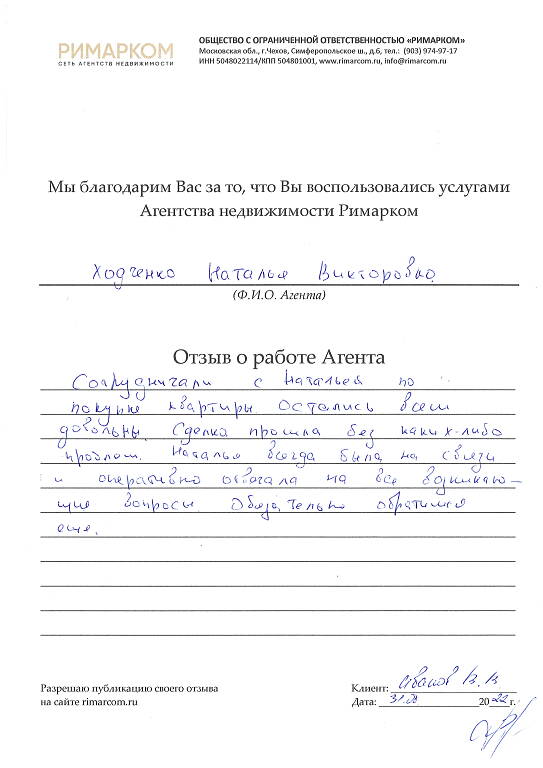 РИМАРКОМ
СЕТЬ АГЕНТСТВ НЕДВИЖИМОСТИ
ОБЩЕСТВО С ОГРАНИЧЕННОЙ ОТВЕТСТВЕННОСТЬЮ «РИМАРКОМ»
Московская обл., г.Чехов, Симферопольское ш., д.6, тел.: (903) 974-97-17
ИНН 5048022114/КПП 504801001, www.rimarcom.ru, info@rimarcom.ru
Мы благодарим Вас за то, что Вы воспользовались услугами
Агентства недвижимости Римарком
Ходченко Наталья Викторовна
(Ф.И.О. Агента)
Отзыв о работе Агента
Сотрудничали с Натальей по
покупке квартиры. Остались всем
довольны. Сделка прошла без каких-либо
проблем. Наталья всегда была на связи
и оперативно отвечала на все возникаю-
щие вопросы. Обязательно обратимся
еще.
Разрешаю публикацию своего отзыва
на сайте rimarcom.ru
Клиент: Иванов В.В
Дата: 31. 2022 г.